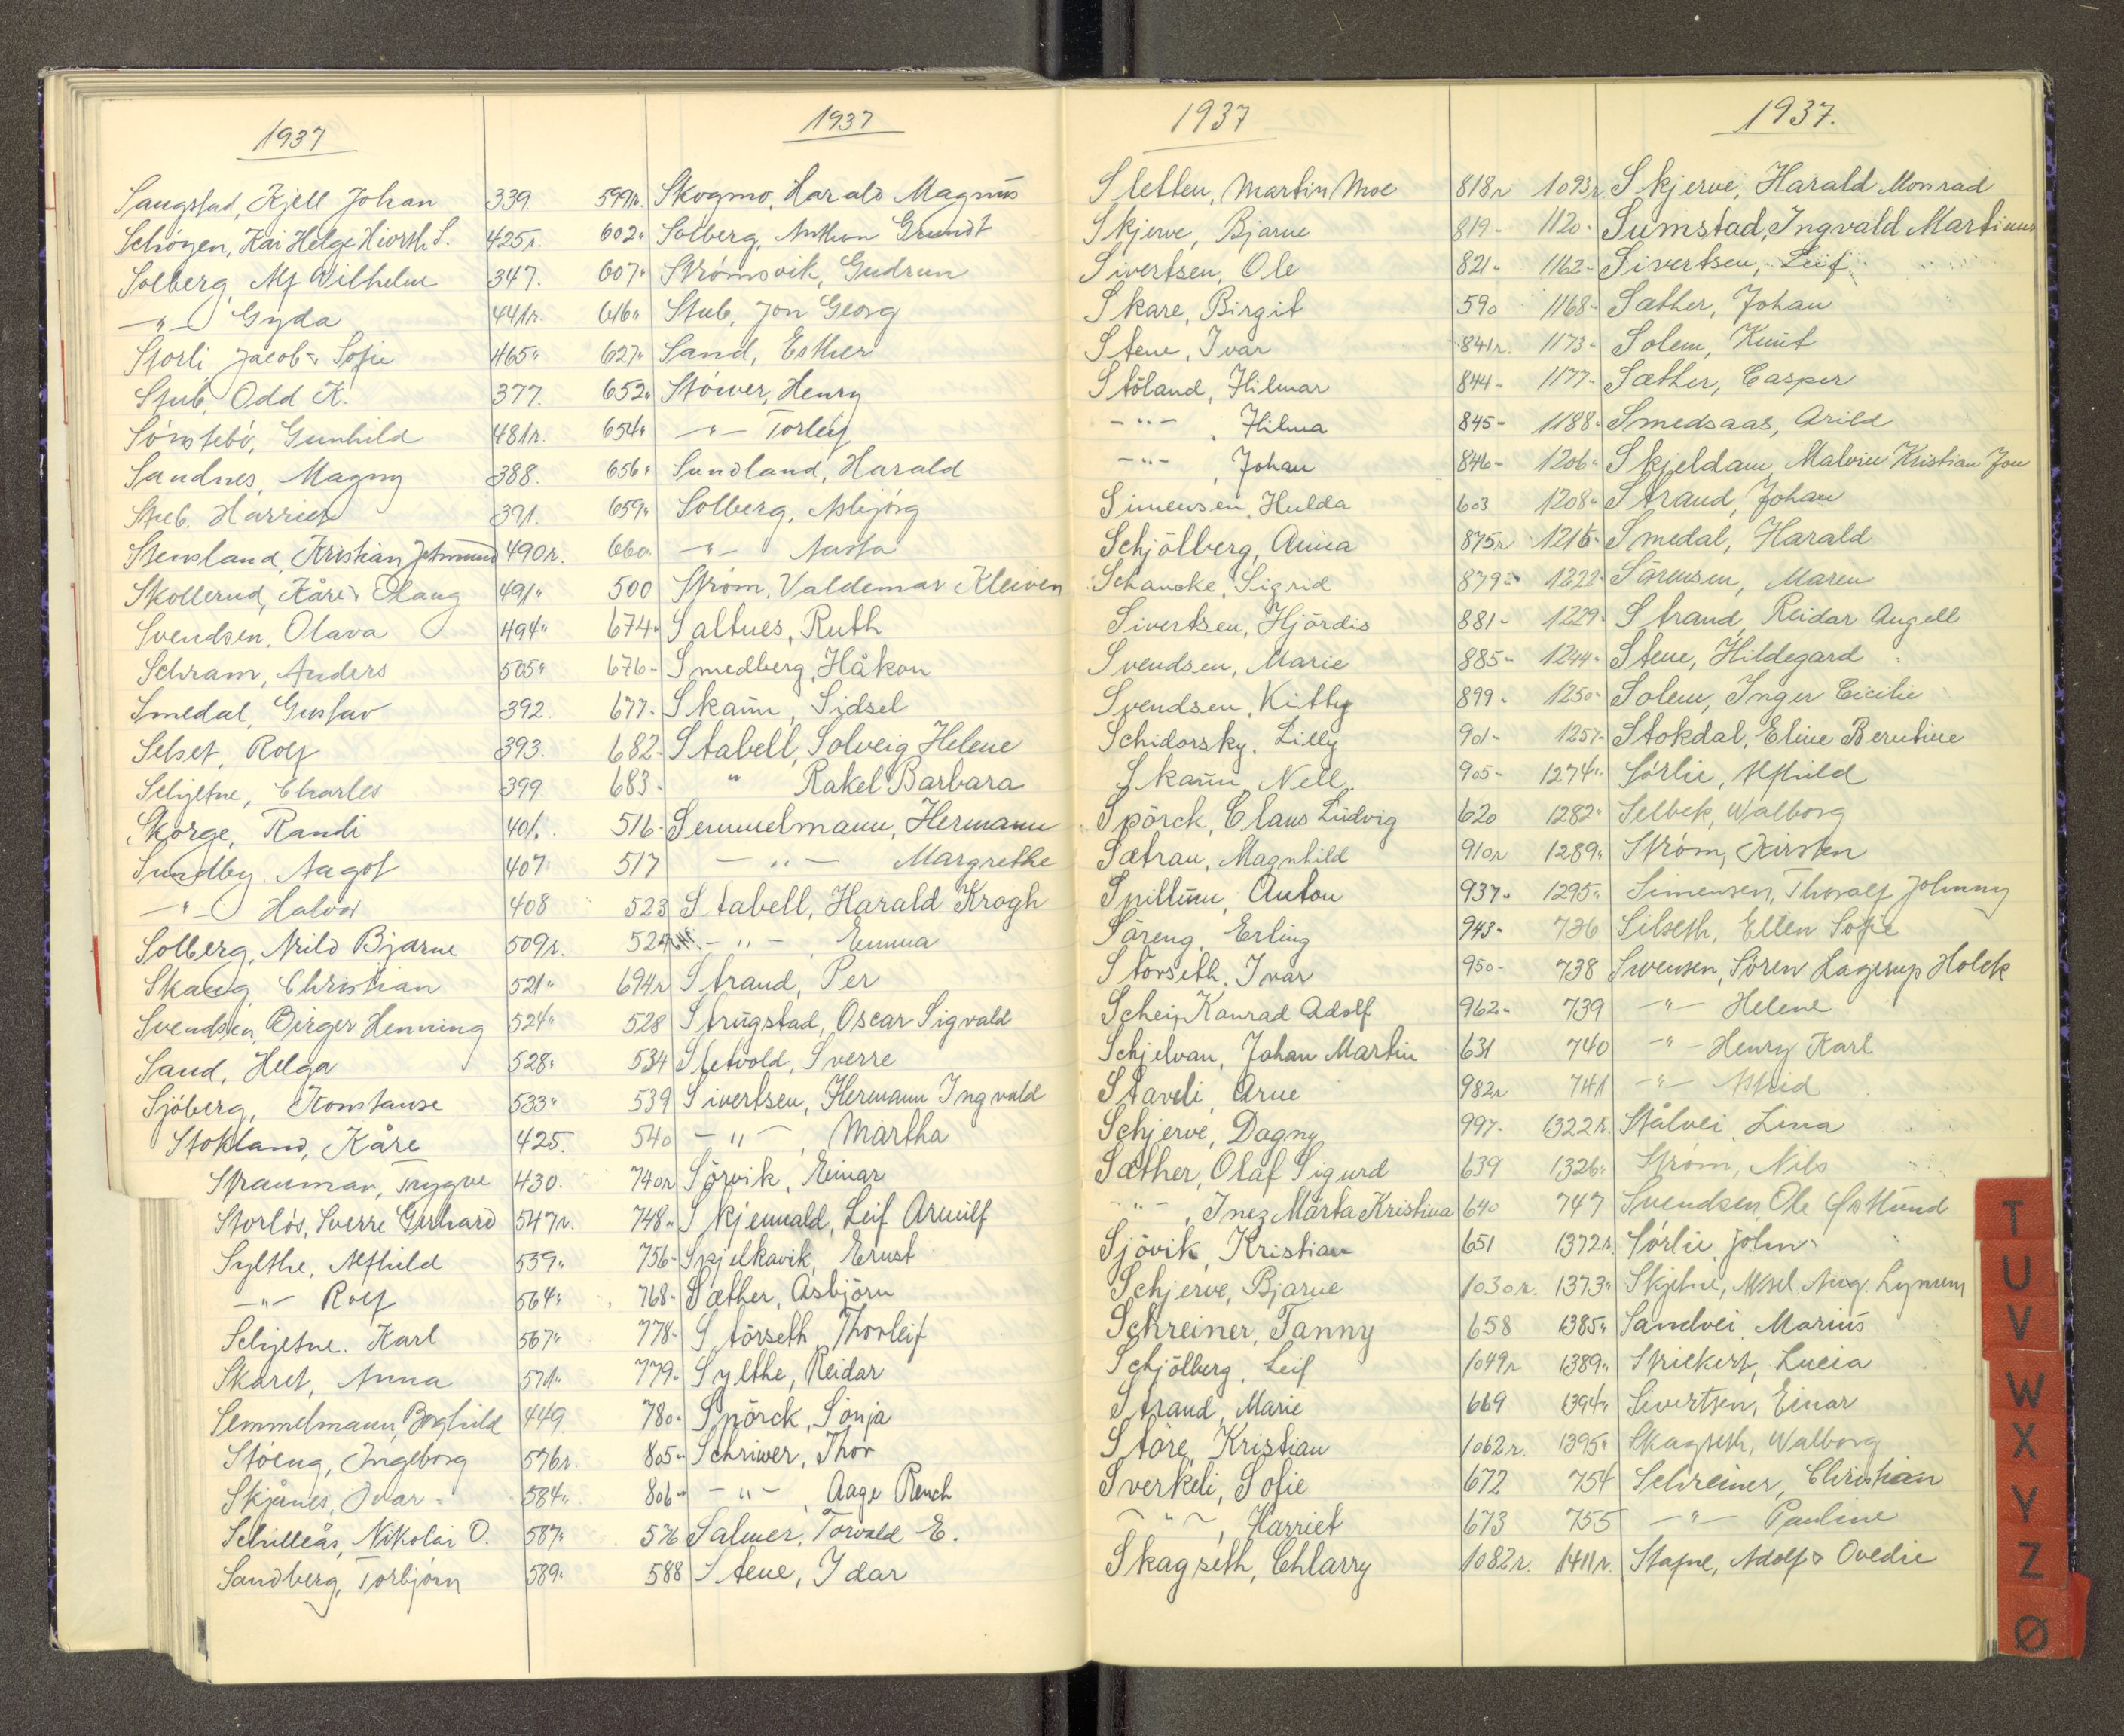 1937
Saugstad, Kjell Johan 339.
Schöyen, Kai Helge Hiorth S. 425r.
Solberg, Alf Wilhelm 347.
-"- Gyda 441r.
Storli Jacob & Sofie 465"
Stub, Odd K. 377.
Sömtebö, Gunhild 481r.
Sandnes, Magny 388.
Stub. Harriet 391.
Stensland, Kristian Jetmund 490r.
Skollerud, Kåre & Olaug 491"
Svendsen, Olava 494"
Schram, Anders 505"
Smedal, Gustav 392.
Selset, Rolf 393.
Schjetne, Charles 399.
Skorge, Randi 401.
Sundby, Aagot 407.
-"- Halvor 408
Solberg, Arild Bjarne 509r.
Skaug, Christian 521"
Svendsen, Birger Henning 524"
Sand, Helga 528"
Sjöberg, Konstanse 533"
Stokland, Kåre 425.
Strauman, Trygve 430.
Storløs, Sverre Gerhard 547r.
Sylthe, Alfhild 559"
-"- Rolf 564"
Schjetne. Karl 567"
Skaret, Anna 571"
Semmelmann, Borghild 449.
Støeng, Ingeborg 576r.
Skjånes, Ivar 584"
Schilleås, Nikolai O. 587"
Sandberg, Torbjørn 589"
1937
599r. Skogmo, Harald Magnus
602" Solberg, Anthon Grundt
607" Strømsvik, Gudrun
616" Stub, Jon Georg
627" Sand, Esther
652" Støwer, Henry
654" -"- Torleif
656" Sundland, Harald
659" Solberg, Asbjørg
660" -"- Aasta
500 Strøm, Valdemar Kleiven
674" Saltnes, Ruth
676- Smedberg, Håkon
677- Skaun, Sidsel
682- Stabell, Solveig Helene
683- " Rakel Barbara
516- Semmelmann, Hermann
517 -"- Margrethe
523 Stabell, Harald Krogh
524 -"- Emma
694r Strand, Per
528 Strugstad, Oscar Sigvald
534 Sletvold, Sverre
539 Sivertsen, Hermann Ingvald
540 -"-, Martha
740r Sörvik, Einar
748" Skjennald, Leif Arnulf
756- Skjelkavik, Ernst
768- Sæther, Asbjörn
778- Störseth, Thorleif
779- Sylthe, Reidar
780- Spörck, Sonja
805- Schriwer, Thor
806" -"-, Aage Rench
576 Salmer, Torvald E.
588 Stene, Idar
1937
Sletten, Martin Moe 818r
Skjerve, Bjarne 819-
Sivertsen, Ole 821-
Skare, Birgit 590
Stene, Ivar 841r.
Stöland, Hilmar 844-
-"-, Hilma 845-
-"-, Johan 846-
Simensen, Hulda 603
Schjölberg, Anna 875r
Schancke, Sigrid 879-
Sivertsen, Hjördis 881-
Svendsen, Marie 885-
Svendsen, Kitty 899-
Schidorsky, Lilly 901-
Skaun, Nell 905-
Spörck, Claus Ludvig 620
Sætran, Magnhild 910r
Spillum, Anton 937-
Söreng, Erling 943-
Störseth, Ivar 950-
Schei, Konrad Adolf 962-
Schjelvan, Johan Martin 631
Staveli, Arne 982r
Schjerve, Dagny 997-
Sæther, Olaf Sigurd 639
-"-, Inez Märta Kristina 640
Sjövik, Kristian 651
Schjerve, Bjarne 1030r.
Schreiner, Fanny 658
Schjölberg, Leif 1049r
Strand, Marie 669
Störe, Kristian 1062r.
Sverkeli, Sofie 672
-"-, Harriet 673
Skagseth, Chlarry 1082r.
1937.
1093r. Skjerve, Harald Monrad
1120- Sumstad, Ingvald Martinus
1162- Sivertsen, Leif
1168- Sæther, Johan
1173- Solem, Knut
1177- Sæther, Casper
1188- Smedsaas, Arild
1206" Skjeldam, Malvin Kristian Jon
1208" Strand, Johan
1215- Smedal, Harald
1222- Sörensen, Maren
1229- Strand, Reidar Angell
1244- Stene, Hildegard
1250- Solem, Inger Cicilie
1257- Stokdal, Eline Berntine
1274" Sørlie, Alfhild
1282" Selbek, Walborg
1289" Strøm, Kirsten
1295" Simensen, Thoralf Johnny
736 Silseth, Ellen Sofie
738 Swensen, Sören Hagerup Holck
739 -"- Helene
740 -"- Henry Karl
741 -"- Astrid
1322r. Stålvei, Lina
1326" Strøm, Nils
747 Svendsen, Ole Østlund
1372r. Sørlie, John
1373" Skjetne, Aksel Aug. Lynum
1385" Sandvei, Marius
1389" Strickert, Lucia
1394" Sivertsen, Einar
1395" Skagseth, Walborg
754 Schreiner, Christian
755 -"- Pauline
1411r. Stafne, Adolf & Ovedie
T
U
V
W
X
Y
Z
Ø